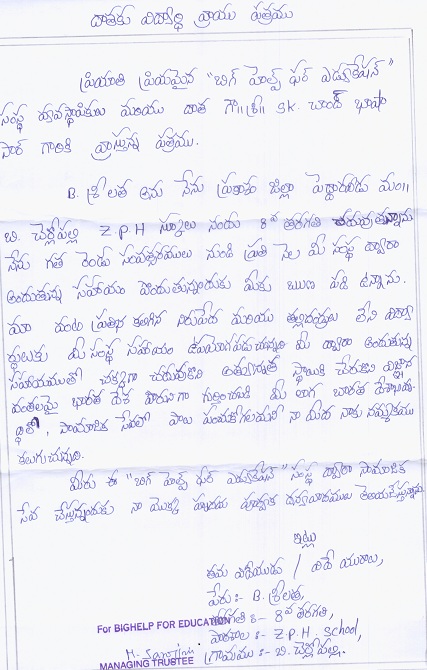 దాతకు విద్యార్థి వ్రాయు పత్రము
ప్రియాతి ప్రియమైన "బిగ్ హెల్ప్ ఫర్ ఎడ్యుకేషన్"
సంస్థ వ్యవస్థాపకులు మరియు దాత గౌ||శ్రీ|| SK. చాంద్ భాషా
సార్ గారికి వ్రాస్తున్న పత్రము.
B. శ్రీలత అను నేను ప్రకాశం జిల్లా పెద్దారవీడు మం||
బి. చెర్లోపల్లి Z.P.H స్కూలు నందు 8వ తరగతి చదువుతున్నాను
నేను గత రెండు సంవత్సరములు నుండి ప్రతి నెల మీ సంస్థ ద్వారా
అందుతున్న సహాయం పొందుతున్నందుకు మీకు ఋణ పడి ఉన్నాను.
మా వంటి ప్రతిభ కలిగిన నిరుపేద మరియు తల్లిదండ్రులు లేని విద్యా
ర్థులకు మీ సంస్థ సహాయం ఉపయోగపడుచున్నది మీ ద్వారా అందుతున్న
సహాయముతో చక్కగా చదువుకొని అత్యున్నత స్థాయికి చేరుకొని విజ్ఞాన
వంతులమై భారత దేశ పౌరునిగా గుర్తించబడి మీ లాగ భారత దేశాభివృ
ద్ధిలో, సామాజిక సేవలో పాలు పంచుకోగలమని నా మీద నాకు నమ్మకము
కలుగుచున్నది.
మీరు ఈ "బిగ్ హెల్ప్ ఫర్ ఎడ్యుకేషన్" సంస్థ ద్వారా సామాజిక
సేవ చేస్తున్నందుకు నా యొక్క హృదయ పూర్వక ధన్యవాదములు తెలియచేస్తున్నాను
ఇట్లు
తమ విధేయుడు / విధేయురాలు,
పేరు:- B. శ్రీలత,
తరగతి:- 8వ తరగతి,
For BIGHELP FOR EDUCATION
పాఠశాల:- Z.P.H. School,
M. Sarojini
గ్రామము:- బి. చెర్లోపల్లి.
MANAGING TRUSTEE